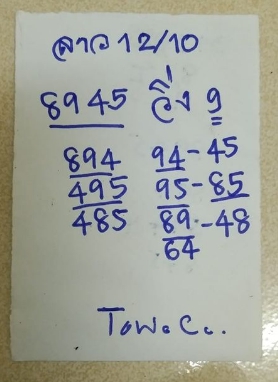 ลาว 12/10
8945 วิ่ง 9
894 94-45
495 95-85
485 89-48
64
Tow.C..